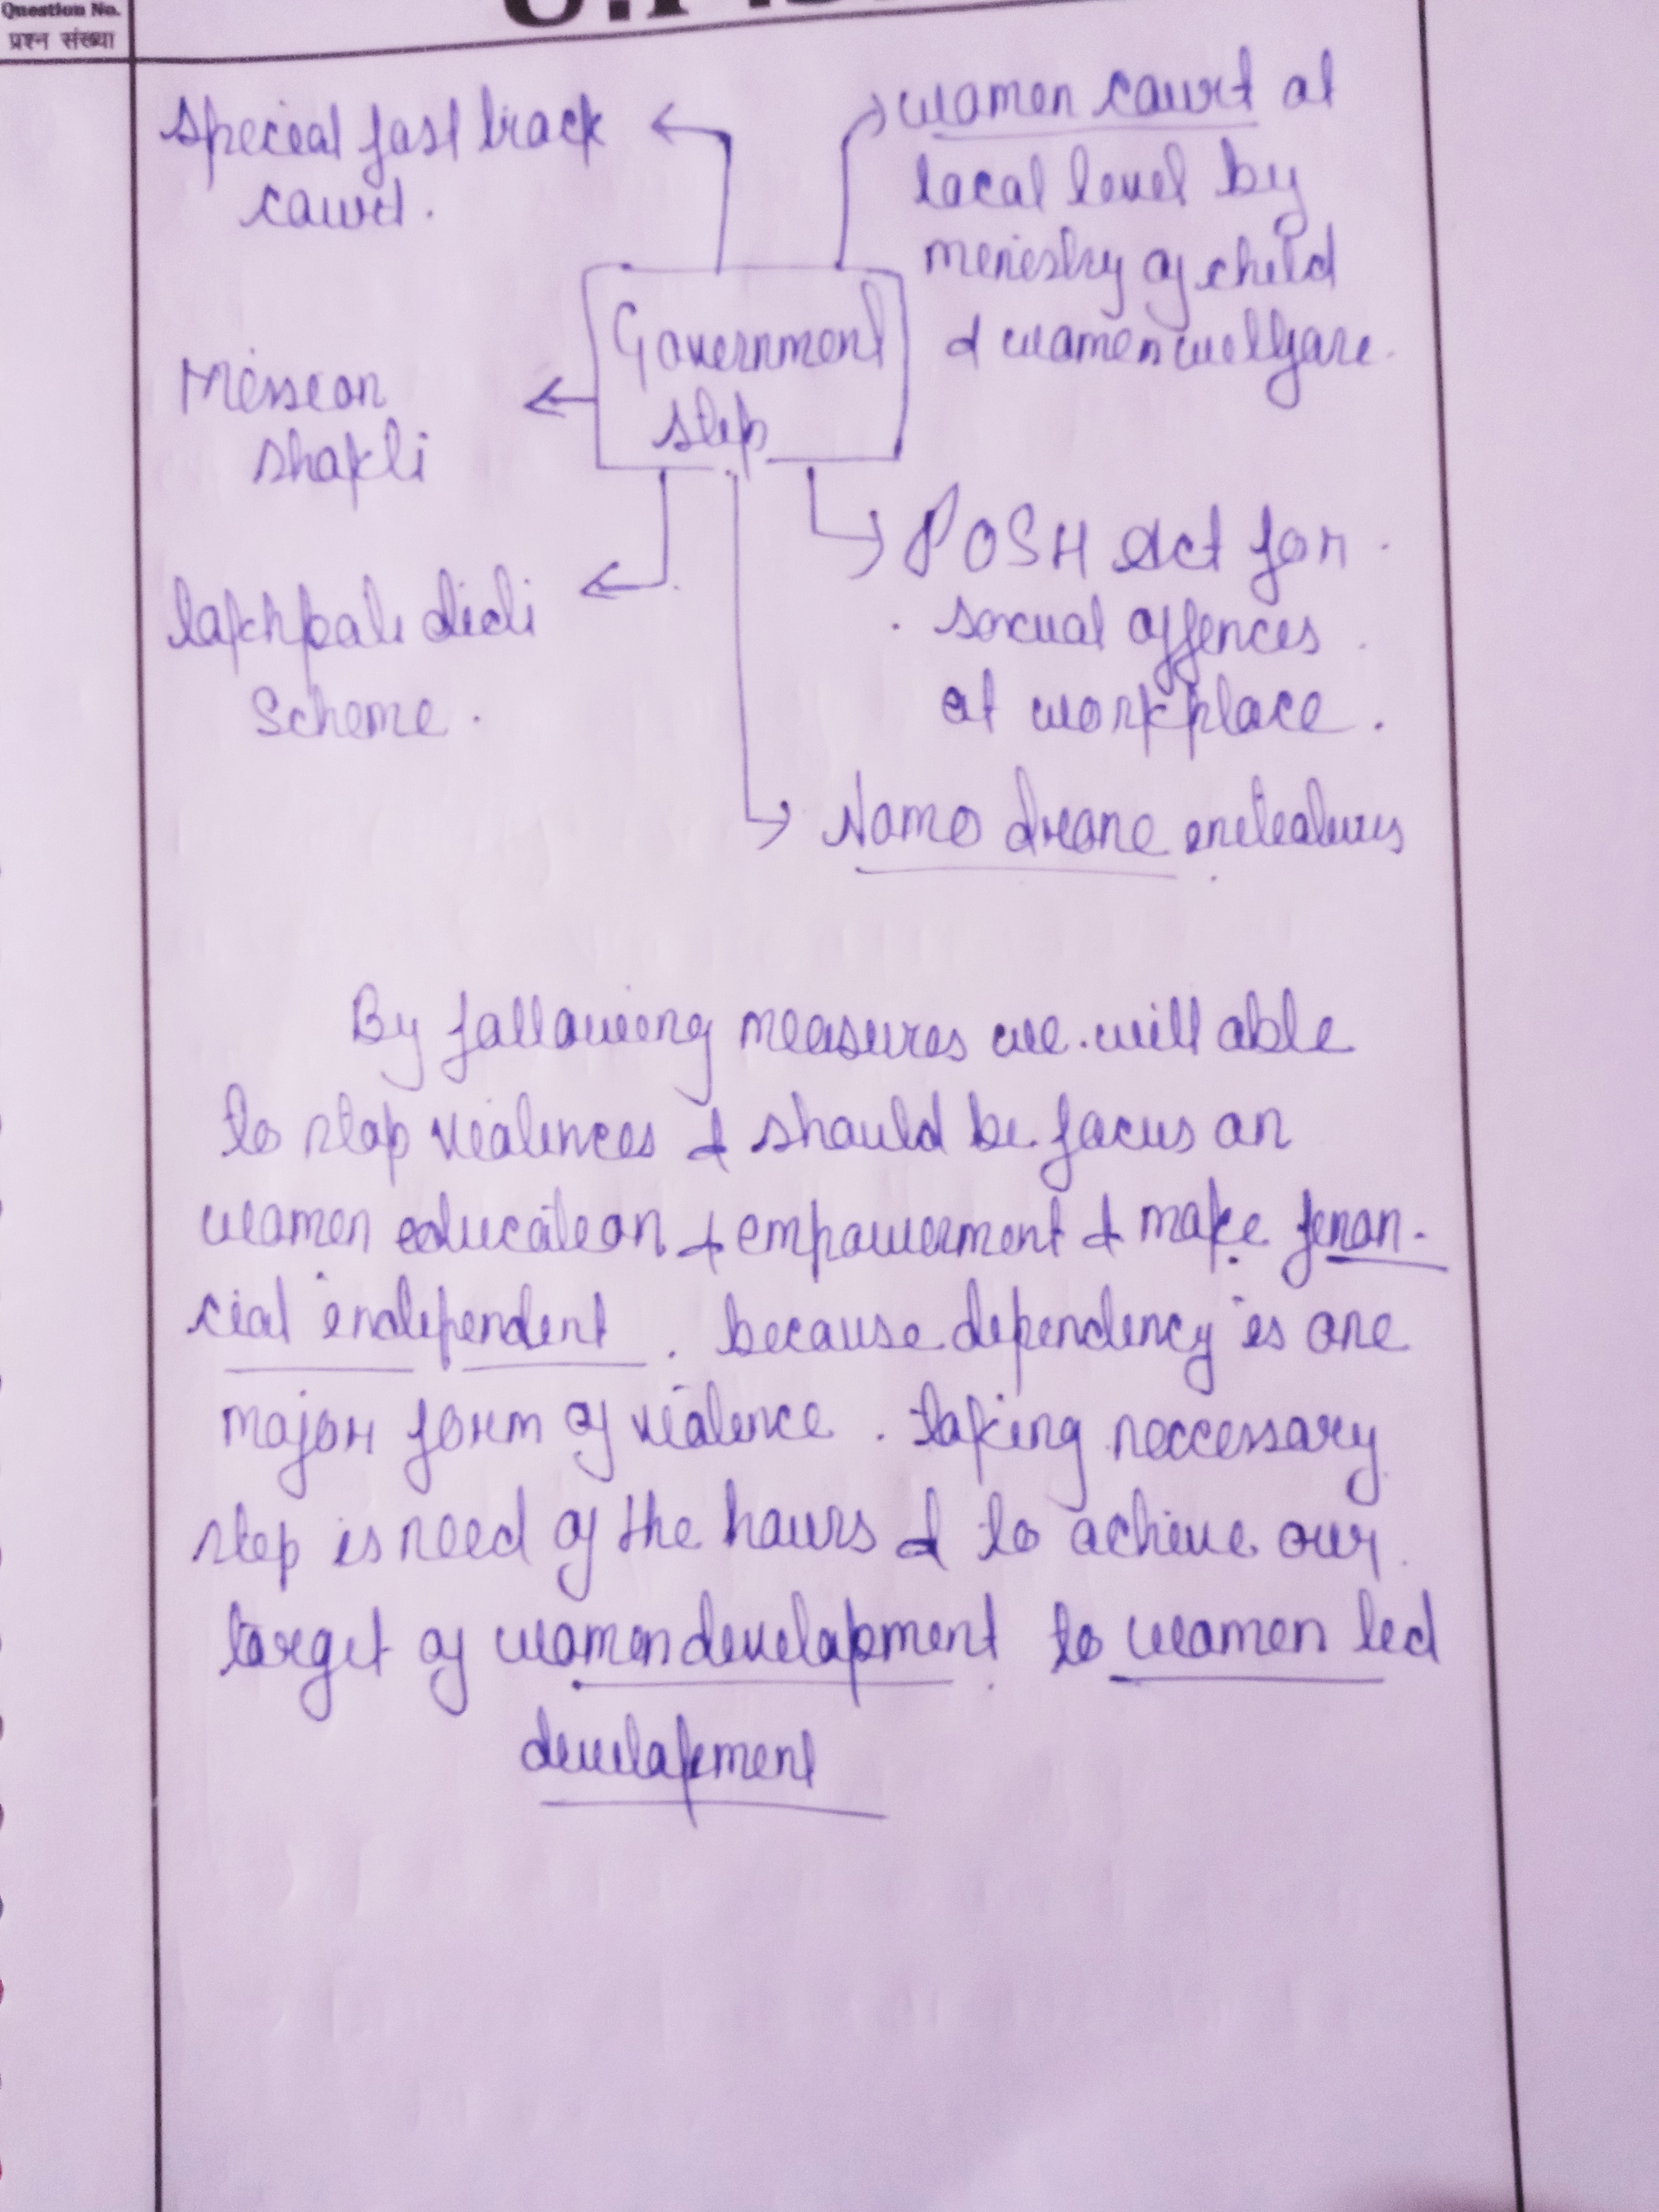 Question No.
प्रश्न संख्या
special fast track
court.
women court at
local level by
ministry of child
& women welfare.
Government
step
Mission
shakti
lakhpati didi
Scheme.
POSH Act for
sexual offences
at workplace.
Namo drone initiatives
By following measures we will able
to stop violences & should be focus on
women education & empowerment & make finan-
cial independent. because dependency is one
major form of violence. taking neccessary
step is need of the hours & to achieve our
target of women development to women led
development